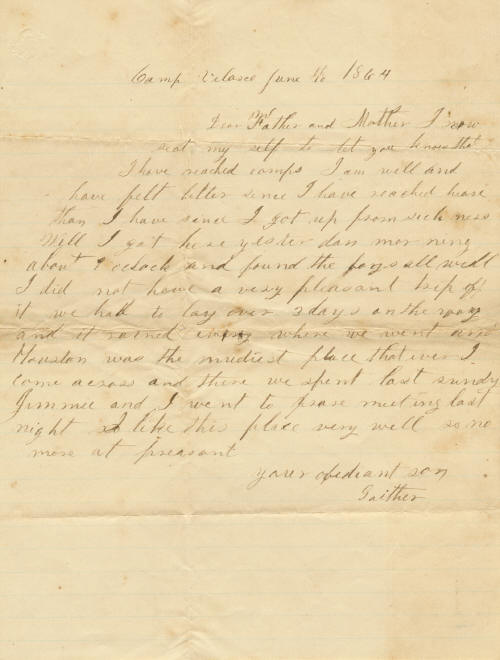 Camp Velasco June 1864
Dear Father and Mother I now
seat my self to let you know that
I have reached camps I am well and
have felt better since I have reached heare
than I have since I got up from sick ness
Well I got here yester day mor ning
about oclock and found the boys all well
I did not have a very pleasant trip of
it we had to lay over 3 days on the way
and it rained every where we went and
Houston was the mudiest place that ever I
come across and there we spent last sundy
Jimmee and I went to prase meeting last
night I like this place very well so no
more at preasant
yourr obediant son
Gaither